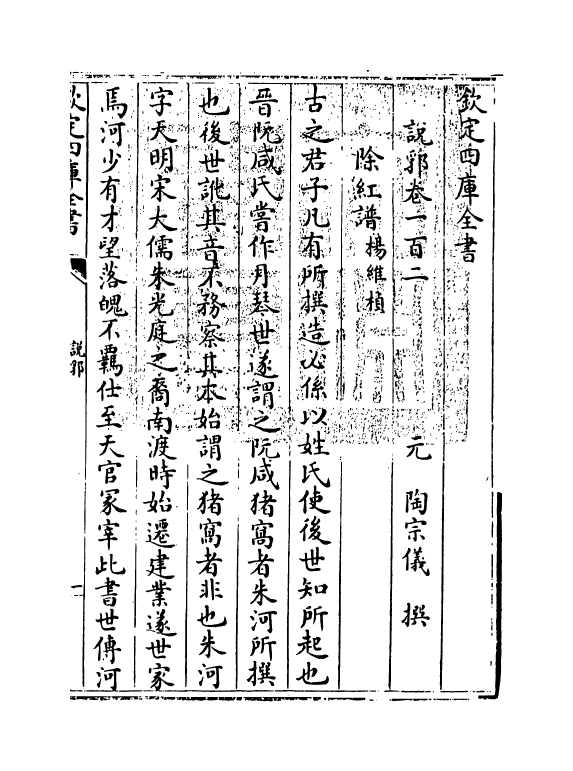 欽定四庫全書
說郛卷一百二
元　陶宗儀　撰
除紅譜　楊維楨
古之君子凡有所撰造必係以姓氏使後世知所起也
晉阮咸氏嘗作月琴世遂謂之阮咸猪窩者朱河所撰
也後世訛其音不務察其本始謂之猪窩者非也朱河
字天明宋大儒朱光庭之裔南渡時始遷建業遂世家
焉河少有才望落魄不羈仕至天官冢宰此書世傳河
欽定四庫全書
說郛
一